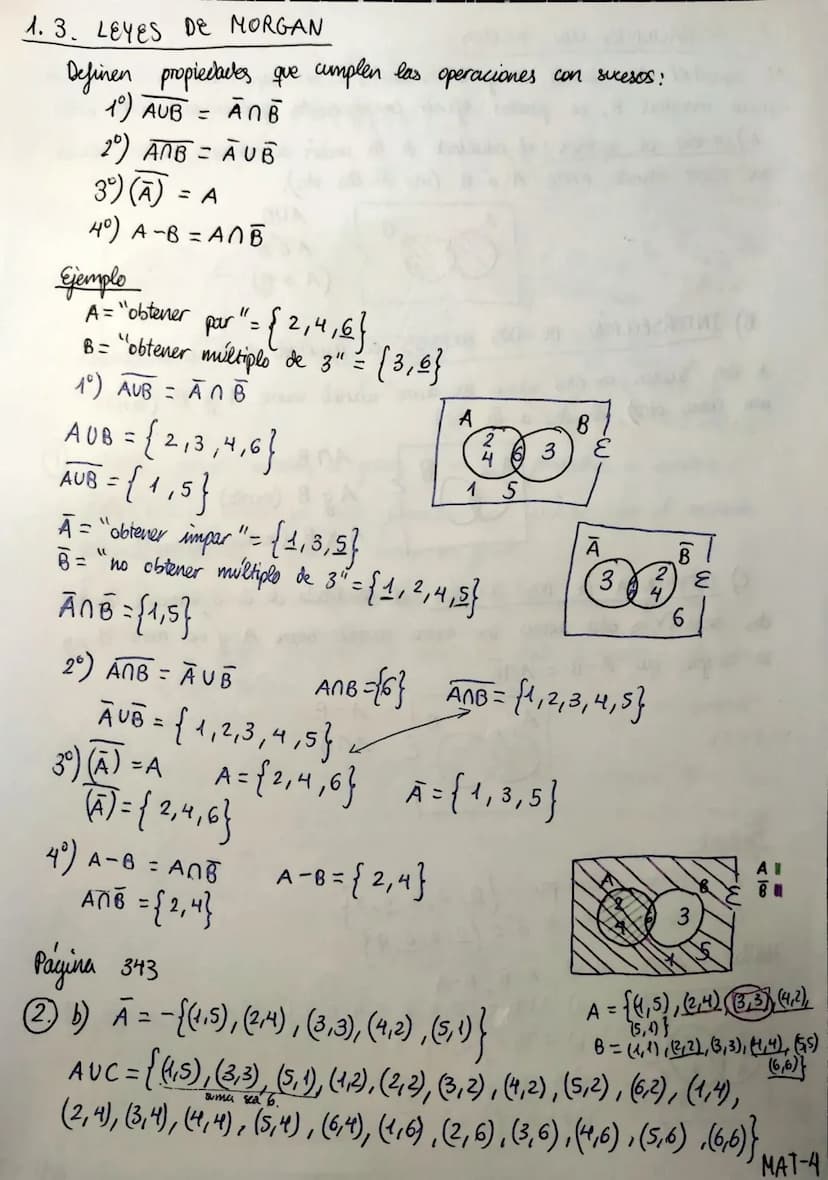 1.3. LEYES DE MORGAN
Definen propiedades que cumplen las operaciones con sucesos:
1º) A̅U̅B̅ = A̅ ∩ B̅
2º) A̅∩̅B̅ = A̅ U B̅
3º) (A̅)̅ = A
4º) A-B = A∩B̅
Ejemplo
A = "obtener par" = {2,4,6}
B = "obtener múltiplo de 3" = {3,6}
1º) A̅U̅B̅ = A̅ ∩ B̅
AUB = {2,3,4,6}
A̅U̅B̅ = {1,5}
A B
2 4 6 3 E
1 5
A̅ = "obtener impar" = {1,3,5}
B̅ = "no obtener múltiplo de 3" = {1,2,4,5}
A̅∩B̅ = {1,5}
A̅ B̅
3 2 4 E
6
2º) A̅∩̅B̅ = A̅ U B̅ A∩B = {6} A̅∩̅B̅ = {1,2,3,4,5}
A̅UB̅ = {1,2,3,4,5}
3º) (A̅)̅ = A A = {2,4,6} A̅ = {1,3,5}
(A̅)̅ = {2,4,6}
4º) A-B = A∩B̅ A-B = {2,4}
A∩B̅ = {2,4}
A B E
2 4 6 3
1 5
A
B̅
Página 343
2. b) A̅ = -{(1,5), (2,4), (3,3), (4,2), (5,1)}
A = {(1,5), (2,4), (3,3), (4,2),
(5,1)}
B = (1,1), (2,2), (3,3), (4,4), (5,5)
(6,6)}
AUC = {(1,5), (3,3), (5,1), (1,2), (2,2), (3,2), (4,2), (5,2), (6,2), (1,4),
suma sea 6.
(2,4), (3,4), (4,4), (5,4), (6,4), (1,6), (2,6), (3,6), (4,6), (5,6), (6,6)}
MAT-4